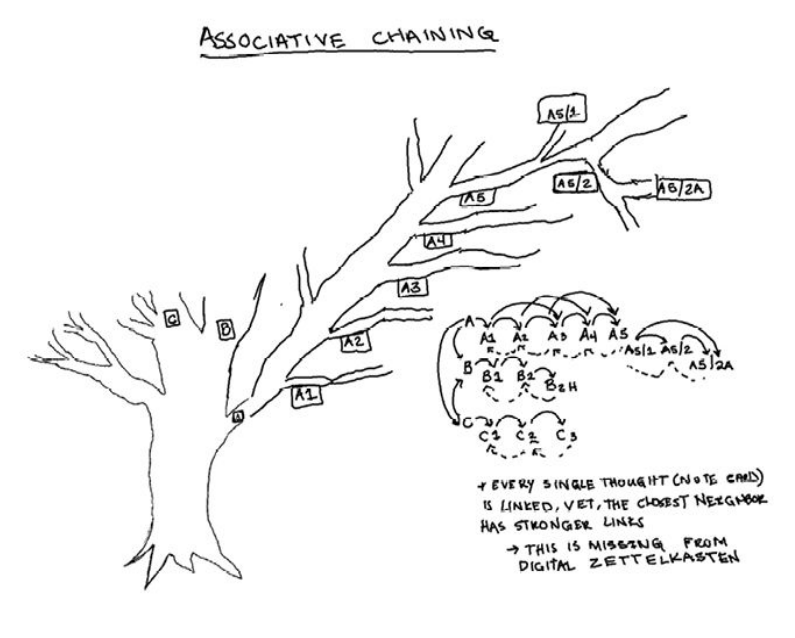 ASSOCIATIVE CHAINING
A5/1
A5/2
A5/2A
A5
A4
A3
A2
A1
C
B
A
A A1 A2 A3 A4 A5
A5/1 A5/2
A5/2A
B B1 B2 B2H
C C1 C2 C3
* EVERY SINGLE THOUGHT (NOTE CARD)
IS LINKED, YET, THE CLOSEST NEIGHBOR
HAS STRONGER LINKS
→ THIS IS MISSING FROM
DIGITAL ZETTELKASTEN